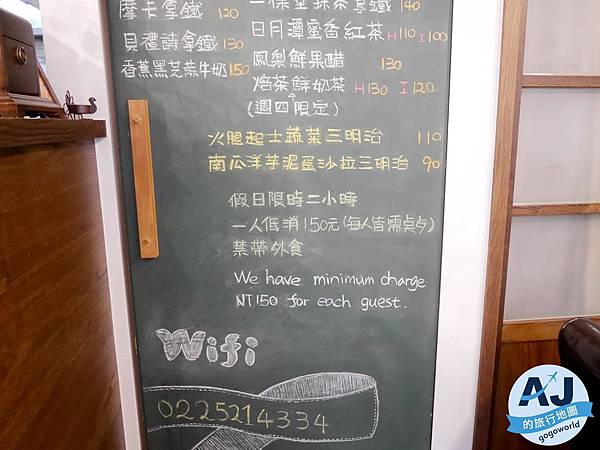 摩卡拿鐵 120
貝禮詩拿鐵 130
香蕉黑芝蔴牛奶 150
一保堂抹茶拿鐵 140
日月潭蜜香紅茶 H110 I100
鳳梨鮮果醋 130
焙茶鮮奶茶 H130 I120
(週四限定)
火腿起士蔬菜三明治 110
南瓜洋芋泥蛋沙拉三明治 90
假日限時二小時
一人低消150元(每人皆需点)
禁帶外食
We have minimum charge
NT150 for each guest.
Wifi
0225214334
AJ
的旅行地圖
gogoworld